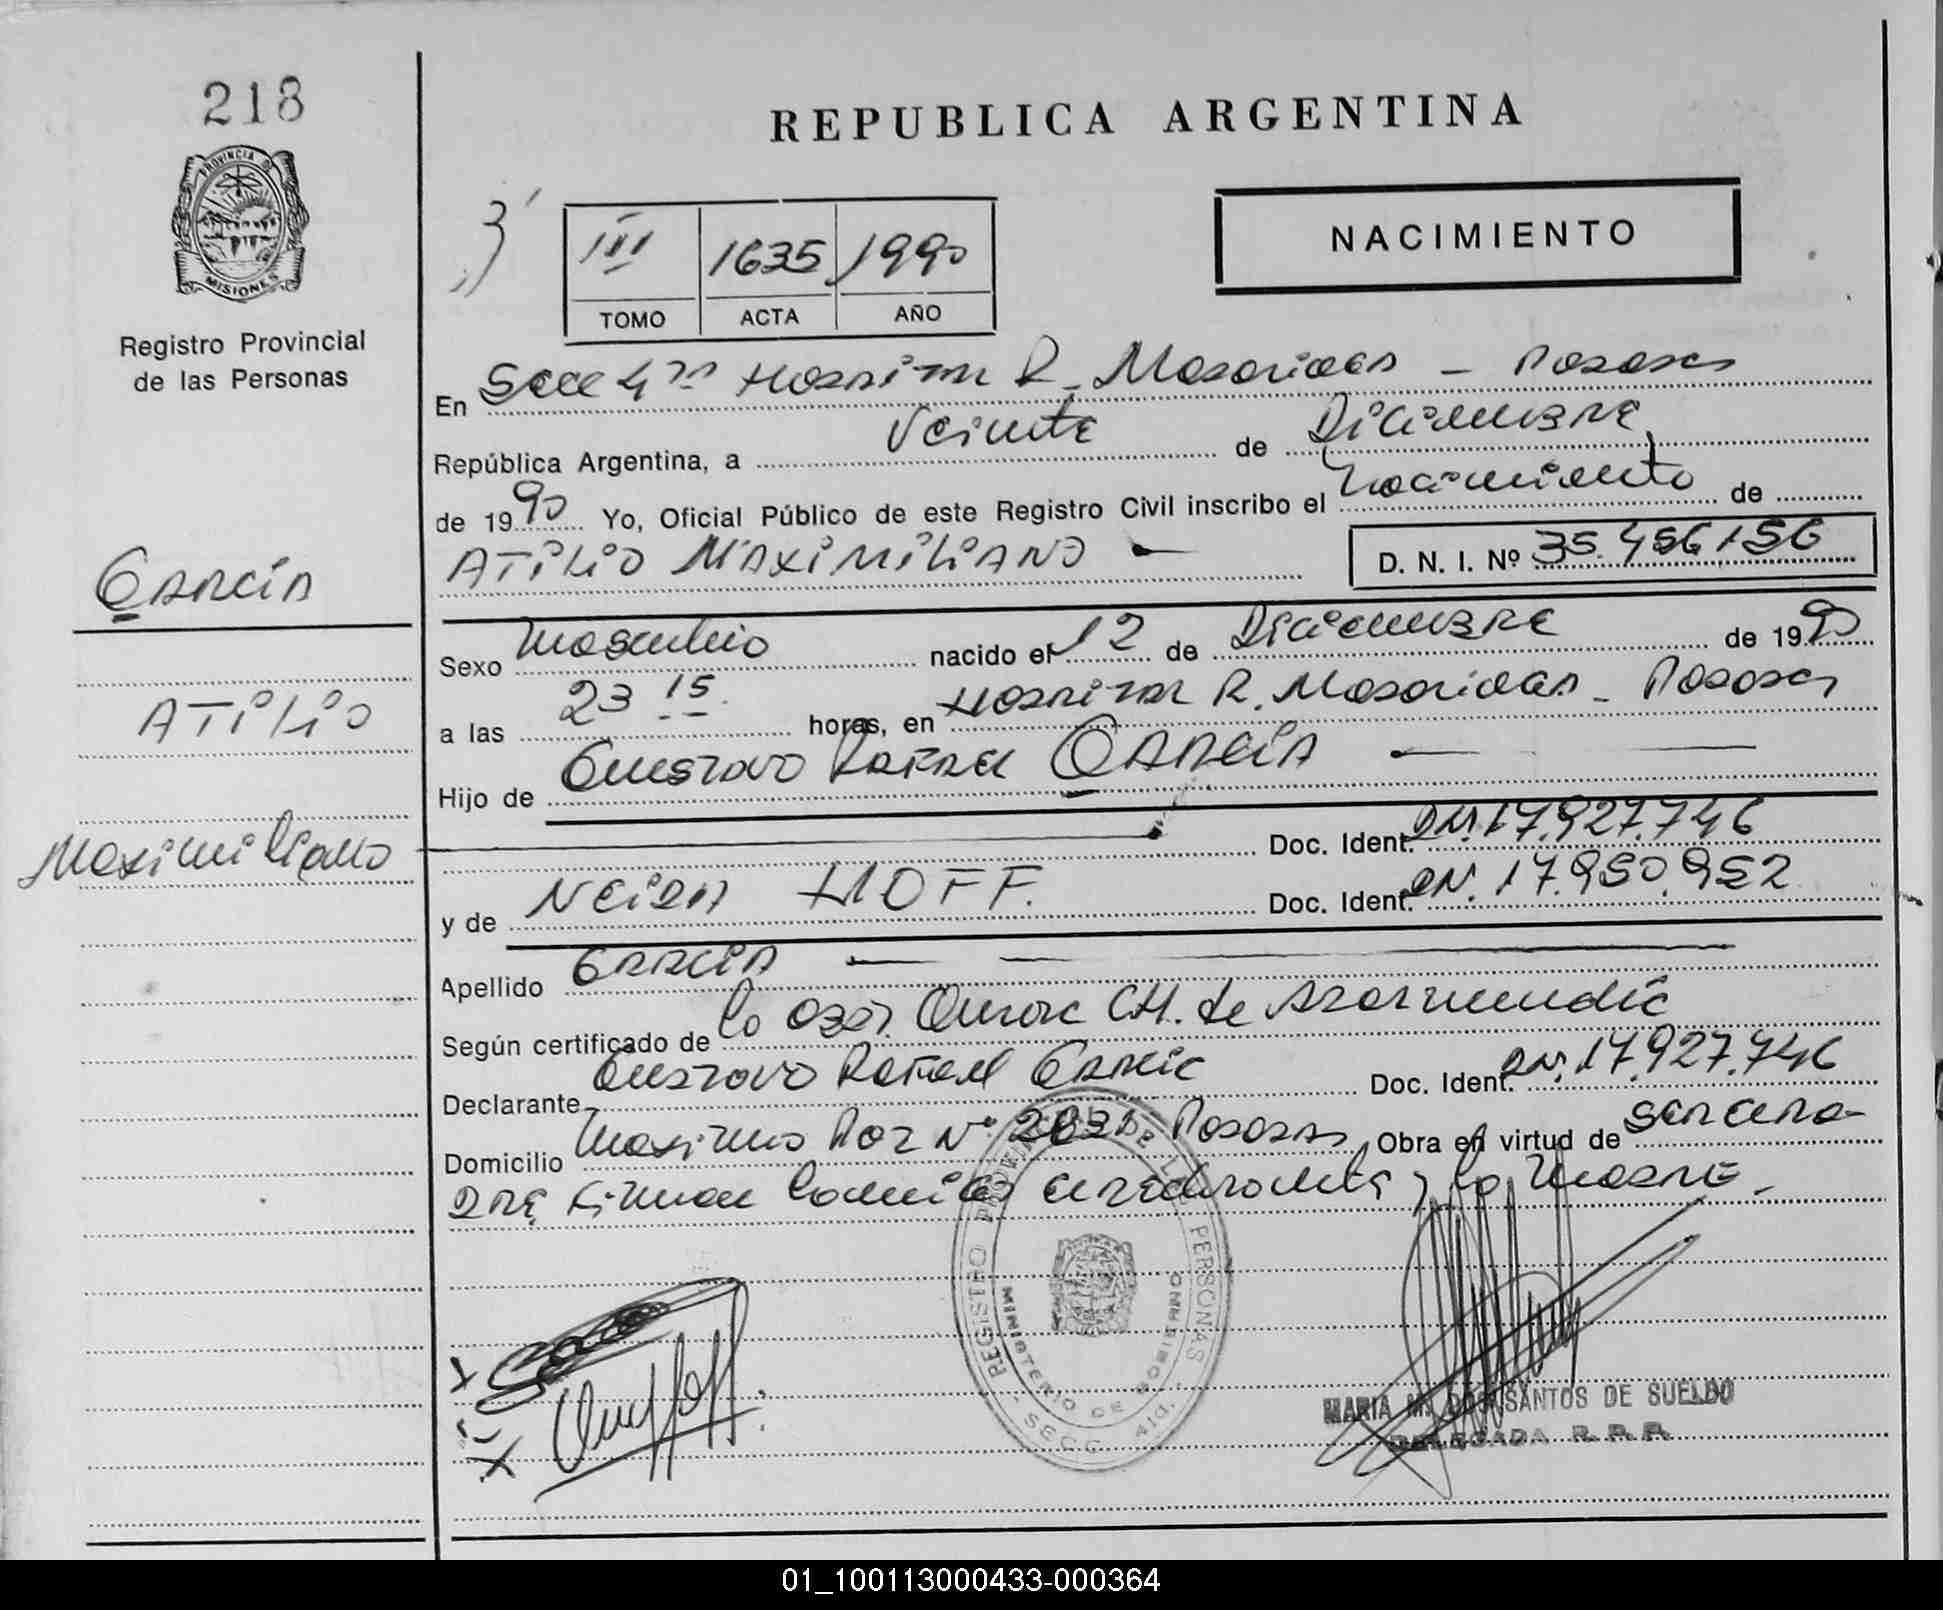 218
PROVINCIA DE
MISIONES
Registro Provincial
de las Personas
García
ATiLiO
Maximiliano
REPUBLICA ARGENTINA
3
III 1635 1990
TOMO ACTA AÑO
NACIMIENTO
En Secc 4ta Hospital R. Madariaga - Posadas
República Argentina, a Veinte de Diciembre
de 1990 Yo, Oficial Público de este Registro Civil inscribo el nacimiento de
ATiLiO MAXiMiLiANO —
D. N. I. Nº 35.456.156
Sexo masculino nacido el 12 de Diciembre de 1990
a las 23 15 horas, en Hospital R. Madariaga - Posadas
Hijo de Gustavo Rafael García —
Doc. Ident. DNI 17.927.746
y de HOFF. Doc. Ident. DN. 17.950.952
Apellido García —
Según certificado de la Obst. CH. de
Declarante Gustavo Rafael García Doc. Ident. DN. 17.927.746
Domicilio Maximo Paz Nº Posadas, Obra en virtud de ser el pa-
dre firman la misma y la madre.
REGISTRO PROVINCIAL DE LAS PERSONAS
MINISTERIO DE GOBIERNO
- SECC. 4ta. -
MARIA M. DOS SANTOS DE SUELDO
DELEGADA R. P. P.
01_100113000433-000364